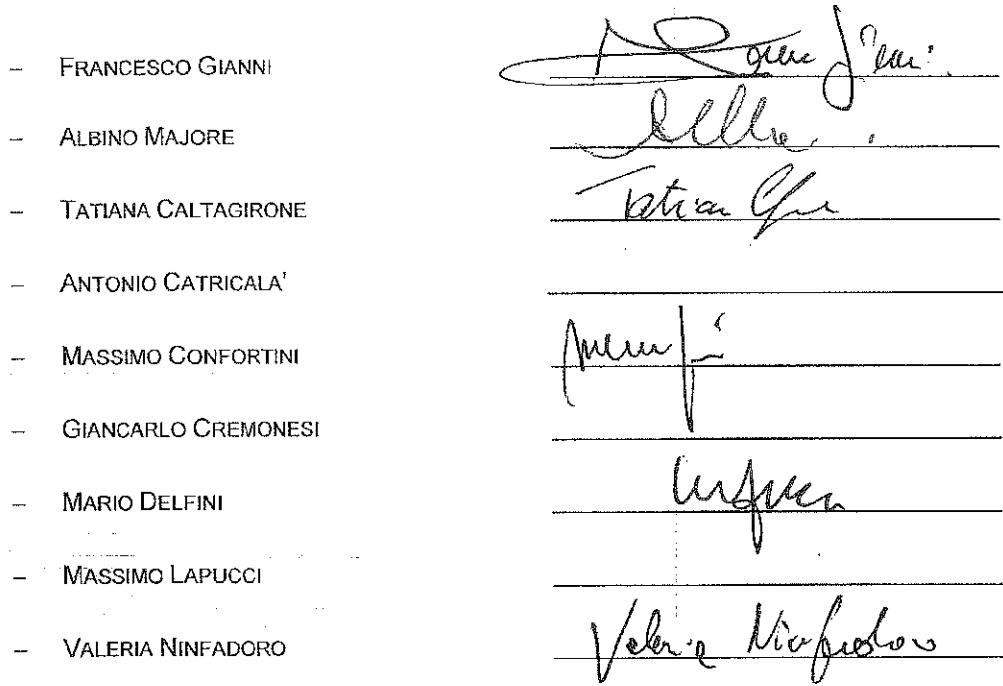 – FRANCESCO GIANNI
– ALBINO MAJORE
– TATIANA CALTAGIRONE Tatiana
– ANTONIO CATRICALA'
– MASSIMO CONFORTINI
– GIANCARLO CREMONESI
– MARIO DELFINI
– MASSIMO LAPUCCI
– VALERIA NINFADORO Valeria Ninfadoro